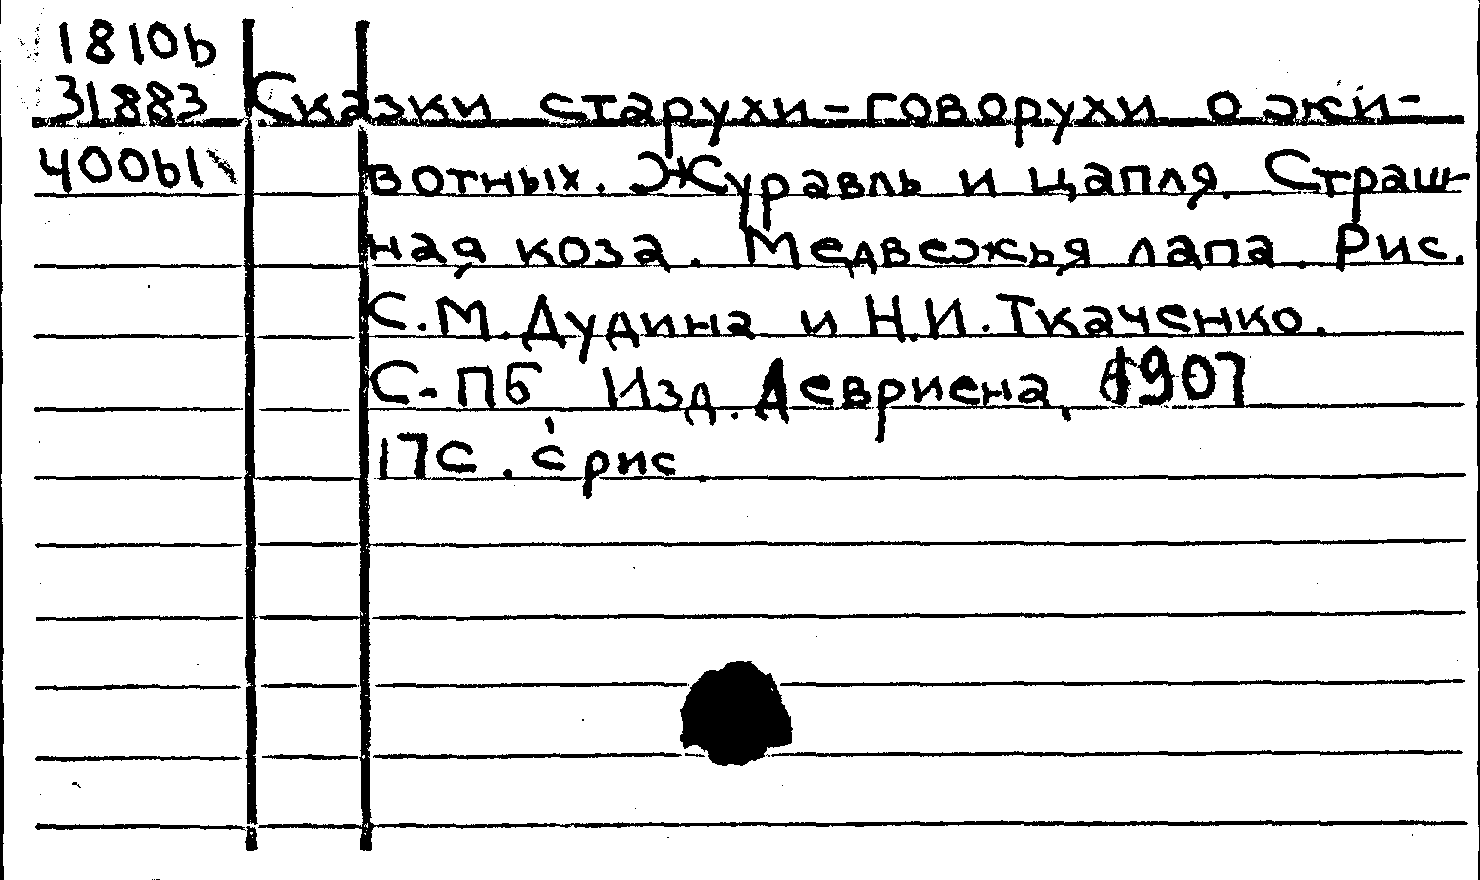 18106
31883 Сказки старухи-говорухи о жи-
40061 вотных. Журавль и цапля. Страш-
ная коза. Медвежья лапа. Рис.
С.М. Дудина и Н.И. Ткаченко.
С-ПБ, Изд. Девриена, 1907
17с. с рис